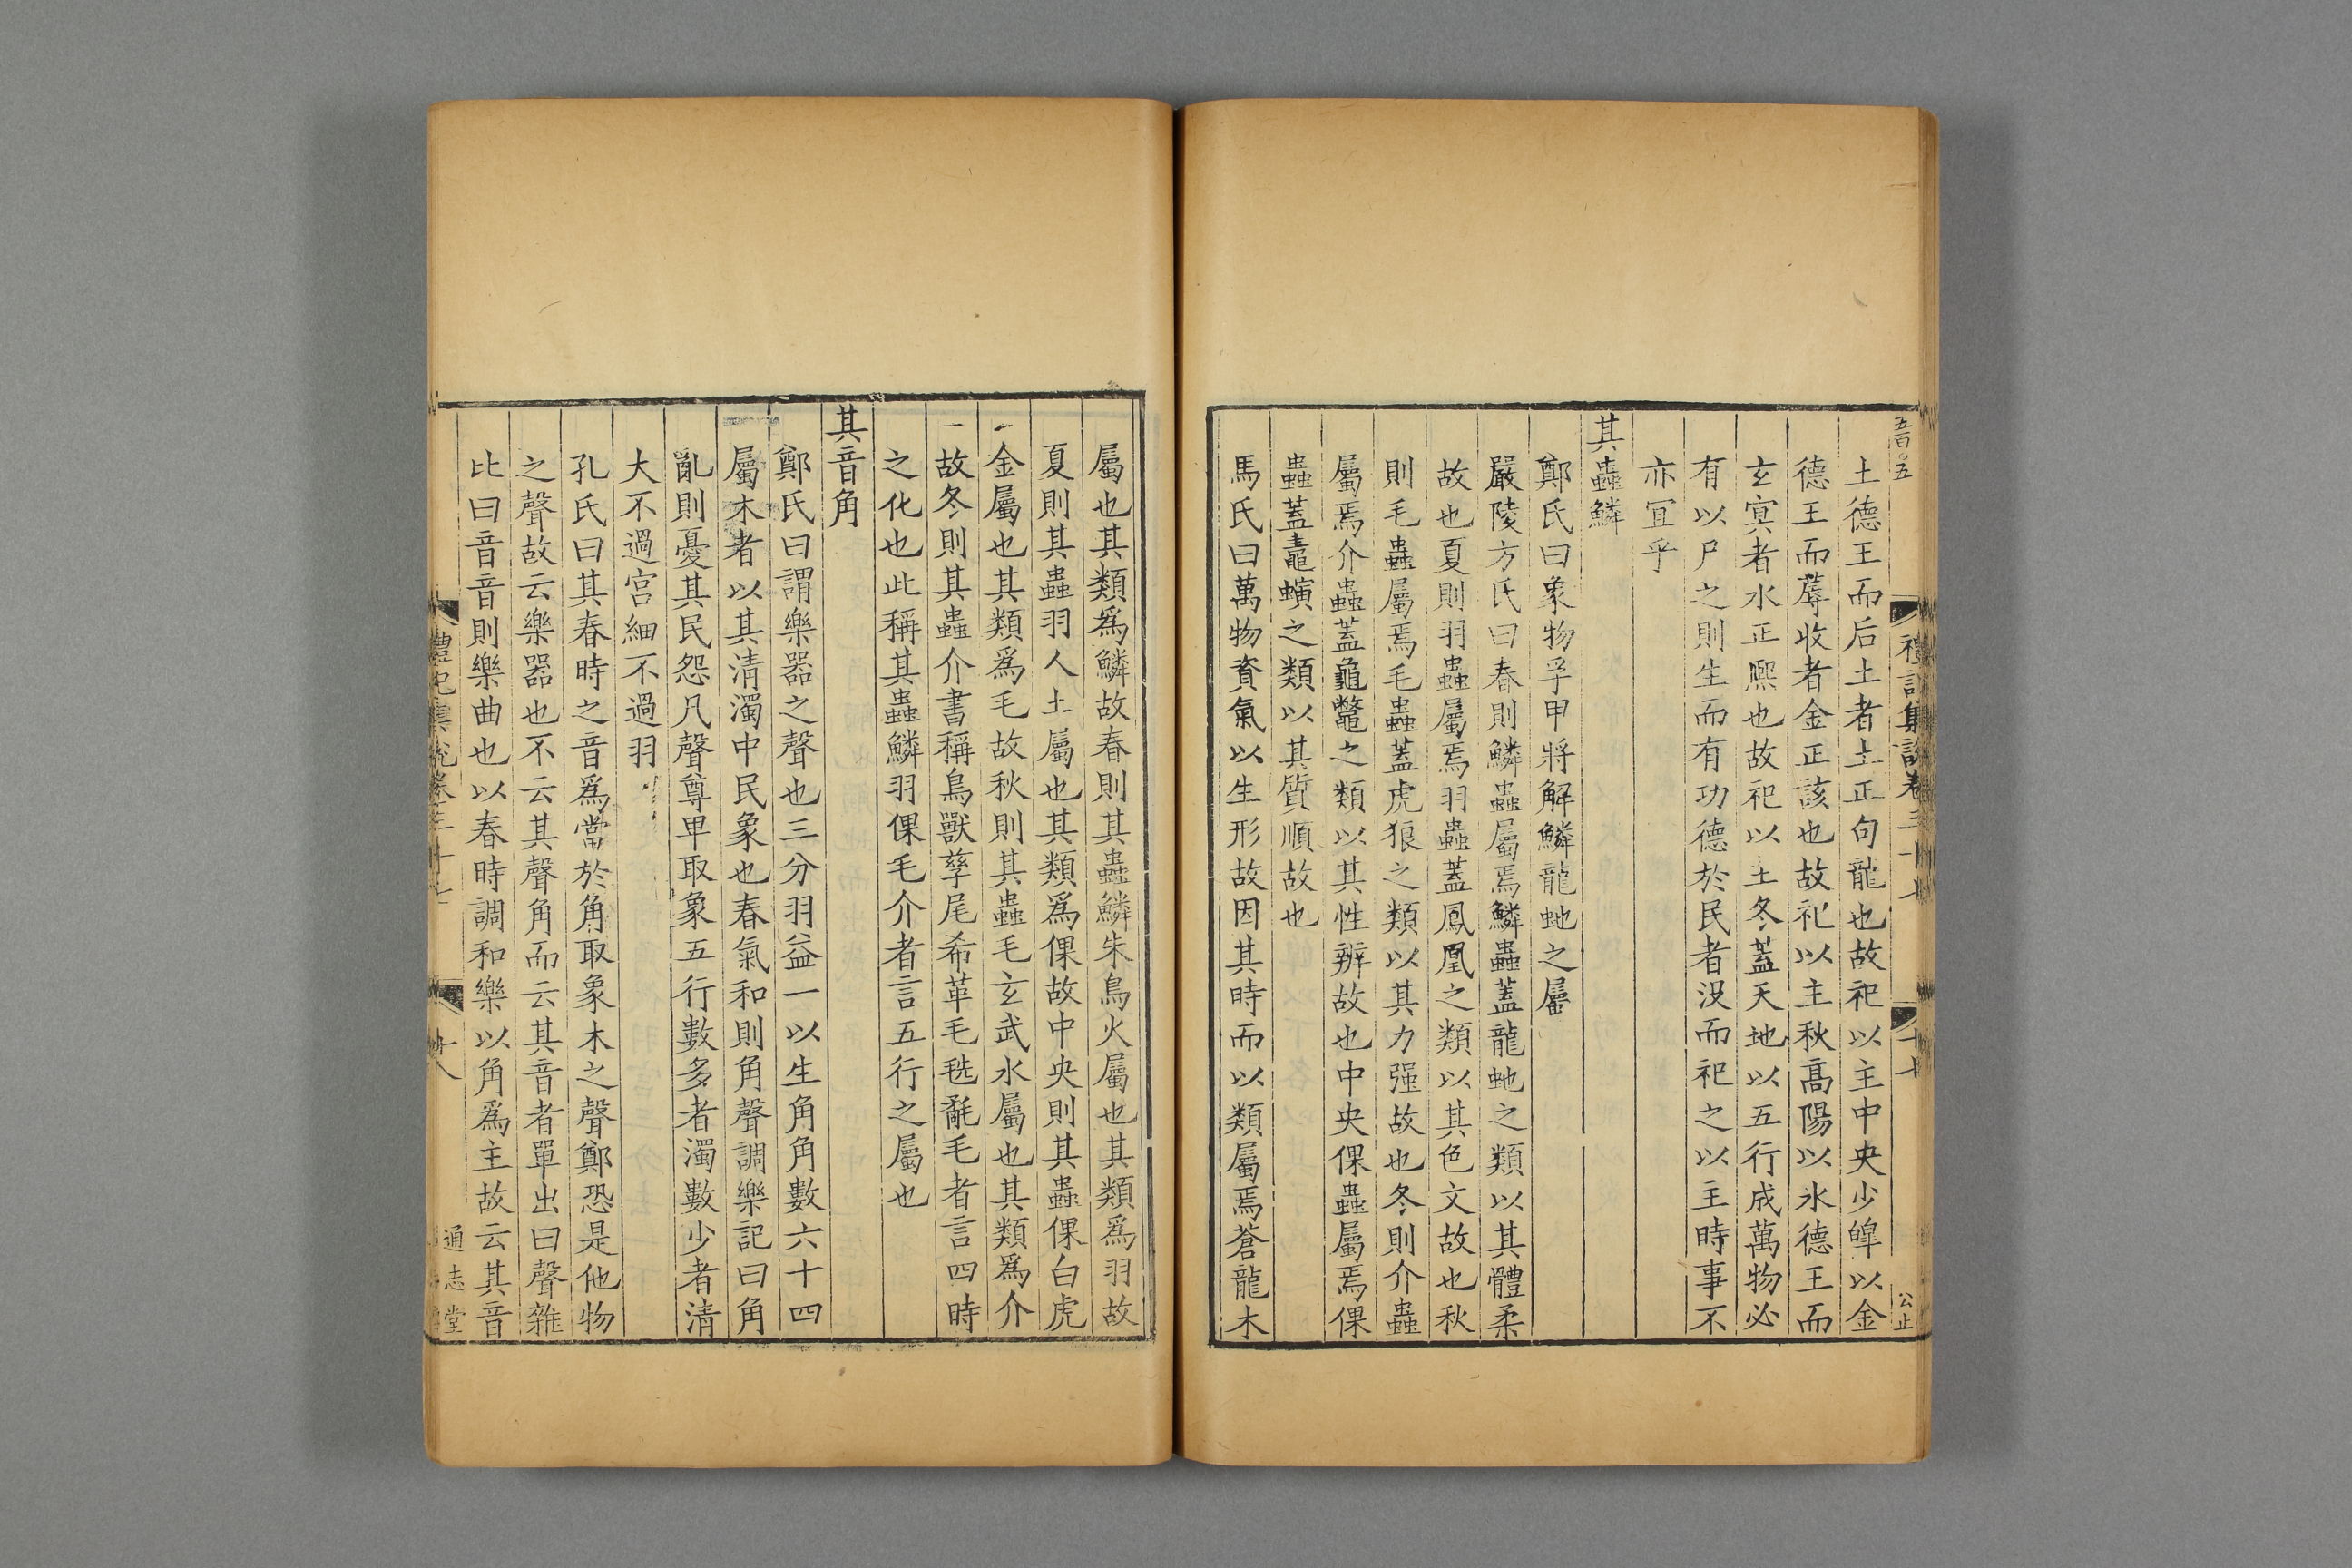 五百〇五
禮記集說卷三十七
十七
公止
土德王而后土者土正句龍也故祀以主中央少皥以金
德王而蓐收者金正該也故祀以主秋髙陽以水德王而
玄冥者水正熈也故祀以主冬蓋天地以五行成萬物必
有以尸之則生而有功德於民者没而祀之以主時事不
亦冝乎
其蟲鱗
鄭氏曰象物孚甲將解鱗龍虵之屬
嚴陵方氏曰春則鱗蟲屬焉鱗蟲蓋龍虵之類以其體柔
故也夏則羽蟲屬焉羽蟲蓋鳳凰之類以其色文故也秋
則毛蟲屬焉毛蟲蓋虎狼之類以其力强故也冬則介蟲
屬焉介蟲蓋龜鼈之類以其性辨故也中央倮蟲屬焉倮
蟲蓋鼃螾之類以其質順故也
馬氏曰萬物資氣以生形故因其時而以類屬焉蒼龍木
屬也其類爲鱗故春則其蟲鱗朱鳥火屬也其類爲羽故
夏則其蟲羽人土屬也其類爲倮故中央則其蟲倮白虎
金屬也其類爲毛故秋則其蟲毛玄武水屬也其類爲介
故冬則其蟲介書稱鳥獸孳尾希革毛毨氄毛者言四時
之化也此稱其蟲鱗羽倮毛介者言五行之屬也
其音角
鄭氏曰謂樂器之聲也三分羽益一以生角角數六十四
屬木者以其清濁中民象也春氣和則角聲調樂記曰角
亂則憂其民怨凡聲尊甲取象五行數多者濁數少者清
大不過宮細不過羽
孔氏曰其春時之音爲當於角取象木之聲鄭恐是他物
之聲故云樂器也不云其聲角而云其音者單出曰聲雜
比曰音音則樂曲也以春時調和樂以角爲主故云其音
禮記集說卷三十七
十八
通志堂